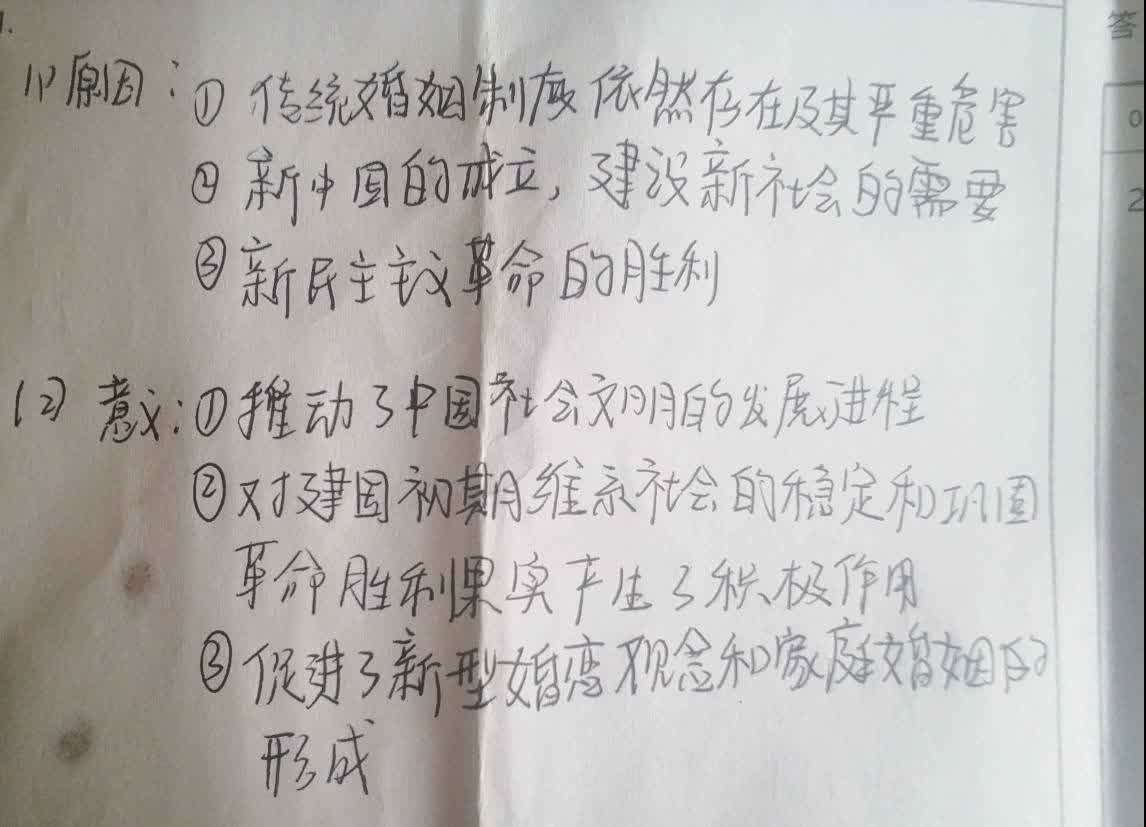 1.
(1)原因:①传统婚姻制度依然存在及其严重危害
②新中国的成立,建设新社会的需要
③新民主主义革命的胜利
(2)意义:①推动了中国社会文明的发展进程
②对建国初期维系社会的稳定和巩固
革命胜利果实产生了积极作用
③促进了新型婚恋观念和家庭婚姻的
形成
答
0
2